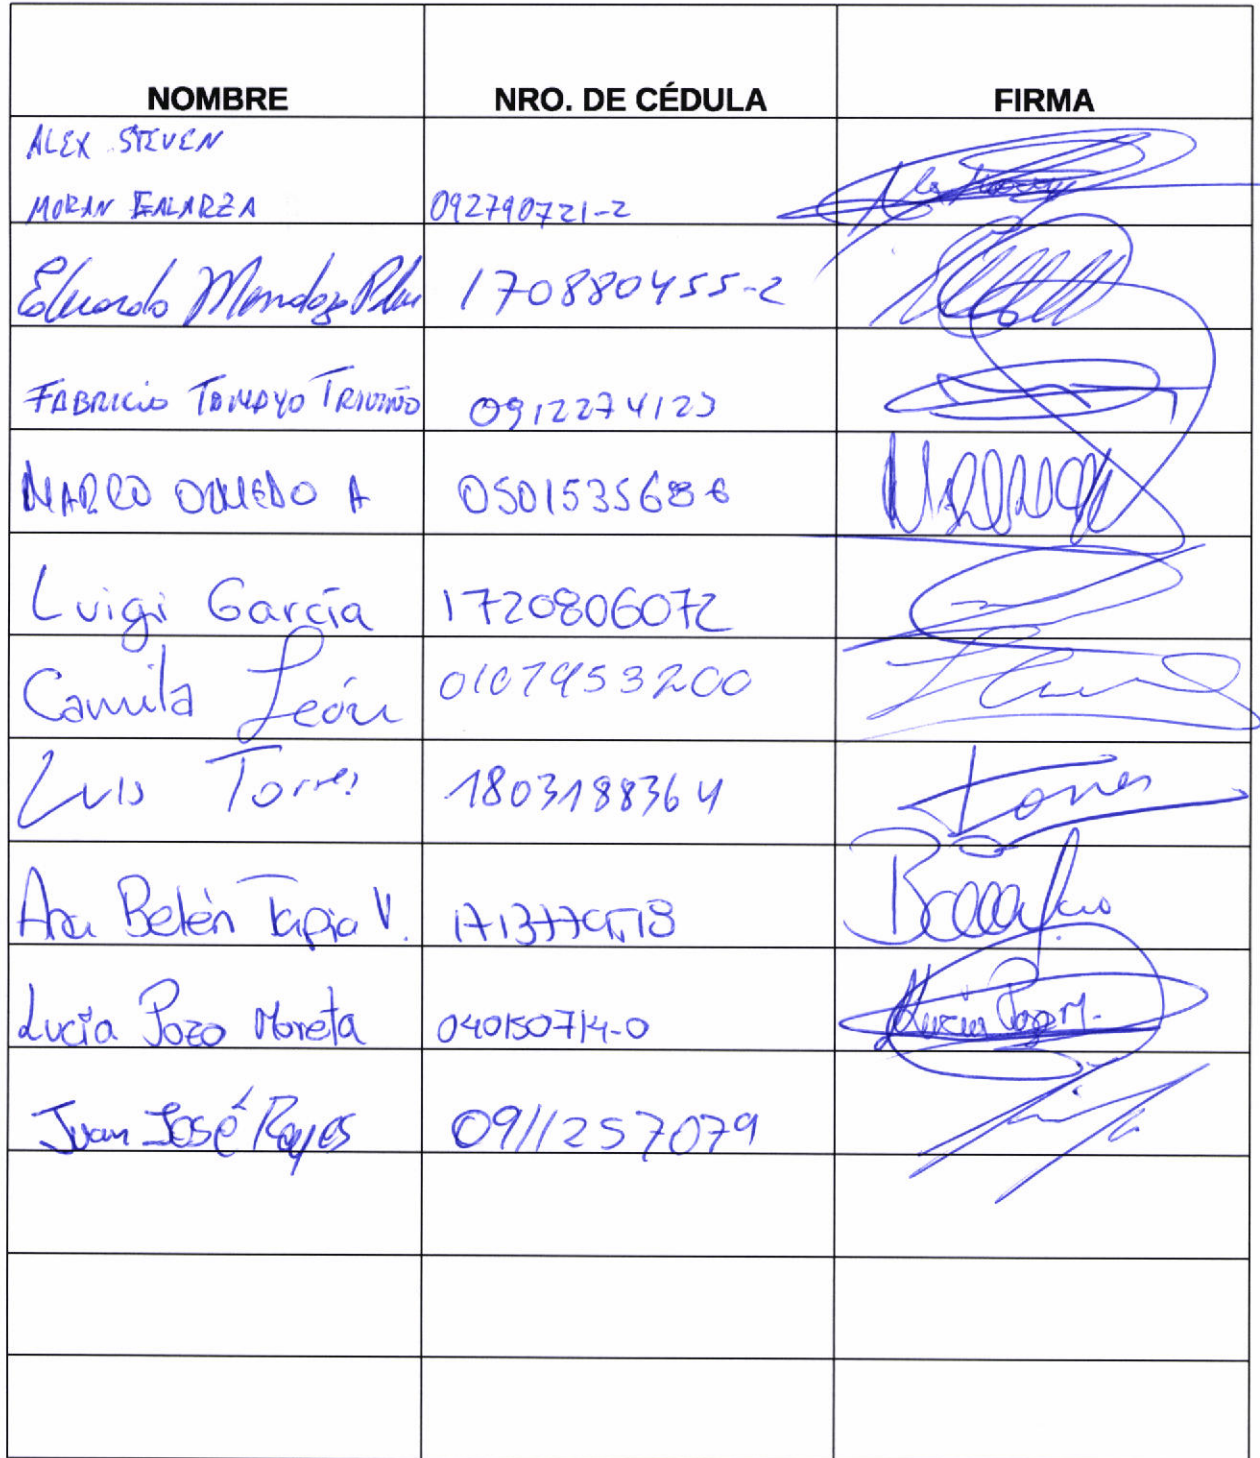 NOMBRE NRO. DE CÉDULA FIRMA
ALEX STEVEN
MORAN GALARZA 092790721-2
Eduardo Mendoza 170880455-2
FABRICIO TAMAYO TRIVIÑO 0912274123
MARCO OLMEDO A 0501535686
Luigi García 1720806072
Camila León
Luis Torres 1803188364 Torres
Ana Belén Tapia V.
Lucía Pozo Moreta 040150714-0 Lucía Pozo M.
Juan José Reyes 0911257079